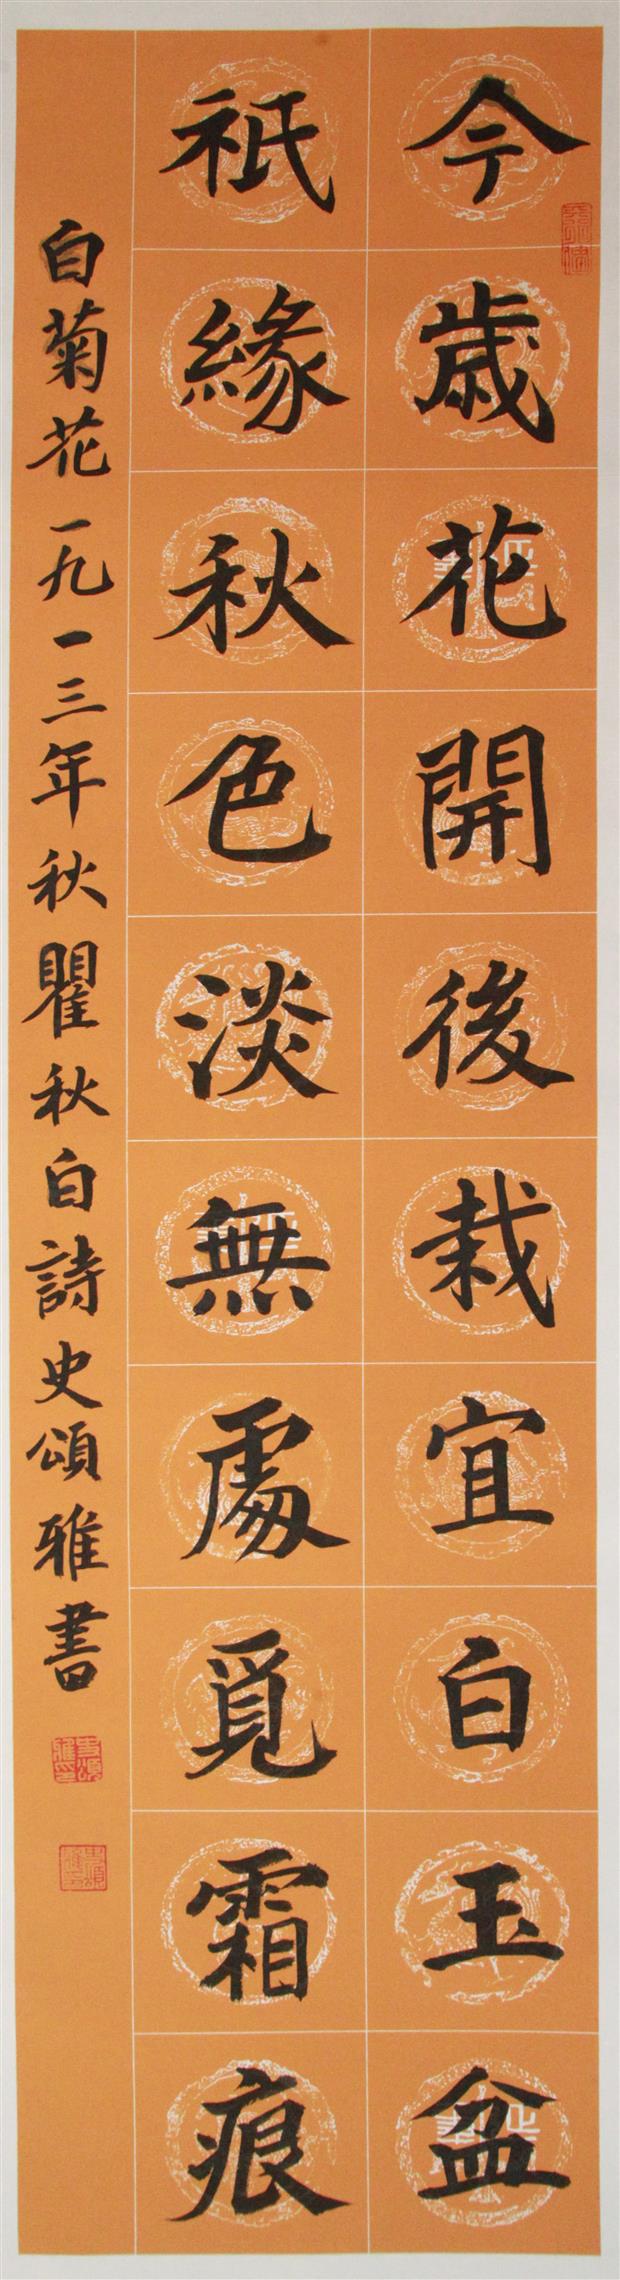 今歲花開後栽宜白玉盆
祇緣秋色淡無處覓霜痕
白菊花一九一三年秋瞿秋白詩史頌雅書